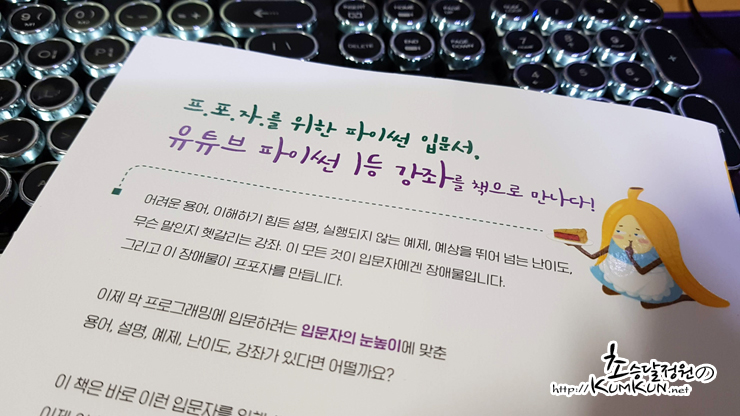 프.포.자.를 위한 파이썬 입문서.
유튜브 파이썬 1등 강좌를 책으로 만나다!
어려운 용어, 이해하기 힘든 설명, 실행되지 않는 예제, 예상을 뛰어 넘는 난이도,
무슨 말인지 헷갈리는 강좌. 이 모든 것이 입문자에겐 장애물입니다.
그리고 이 장애물이 프포자를 만듭니다.
이제 막 프로그래밍에 입문하려는 입문자의 눈높이에 맞춘
용어, 설명, 예제, 난이도, 강좌가 있다면 어떨까요?
이 책은 바로 이런 입문자를 위해
초승달정원の
http://KUMKUN.net
INSERT
HOME
PAGE UP
DELETE
END
PAGE DOWN